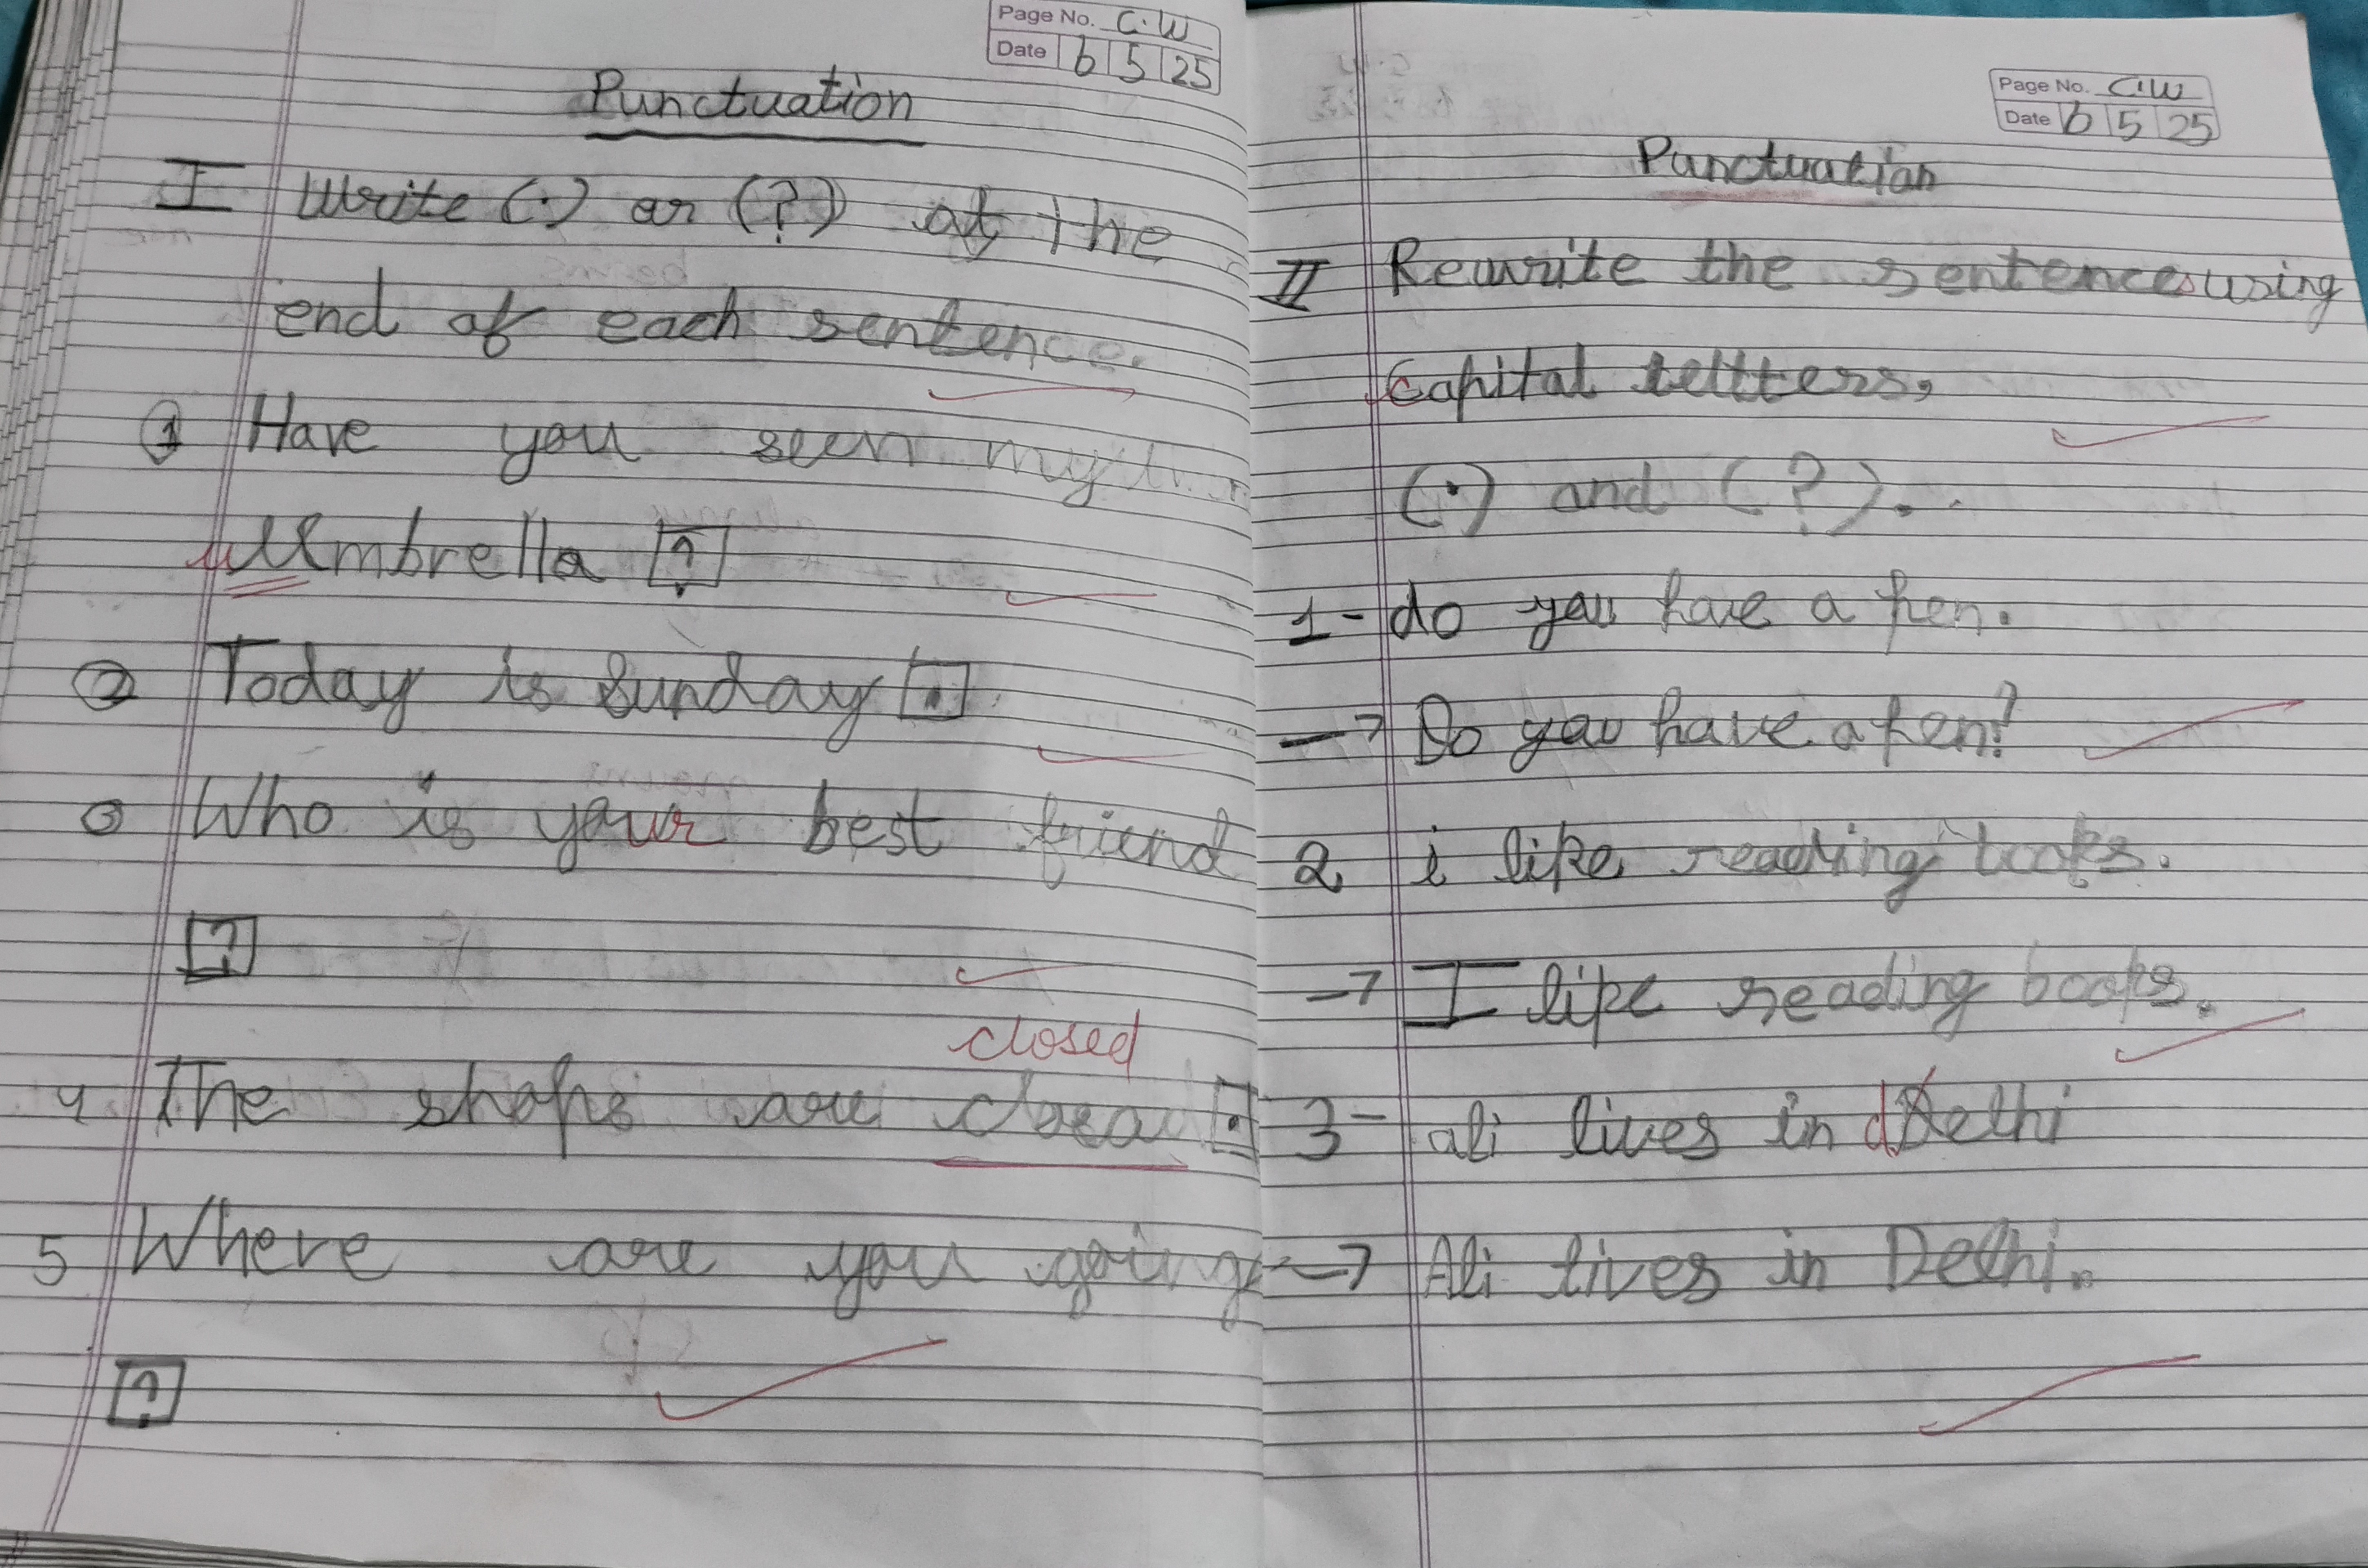 Page No. C.W
Date 6 5 25
Punctuation
I Write (.) or (?) at the
end of each sentence.
1 Have you seen my
Umbrella [?]
2 Today is Sunday [.]
3 Who is your best friend
[?]
closed
4 The shops are closed [.]
5 Where are you going
[?]
Page No. C.W
Date 6 5 25
Punctuation
II Rewrite the sentences using
Capital lettters,
(.) and (?).
1- do you have a pen.
→ Do you have a pen?
2 i like reading books.
→ I like reading books.
3- ali lives in delhi
→ Ali lives in Delhi.